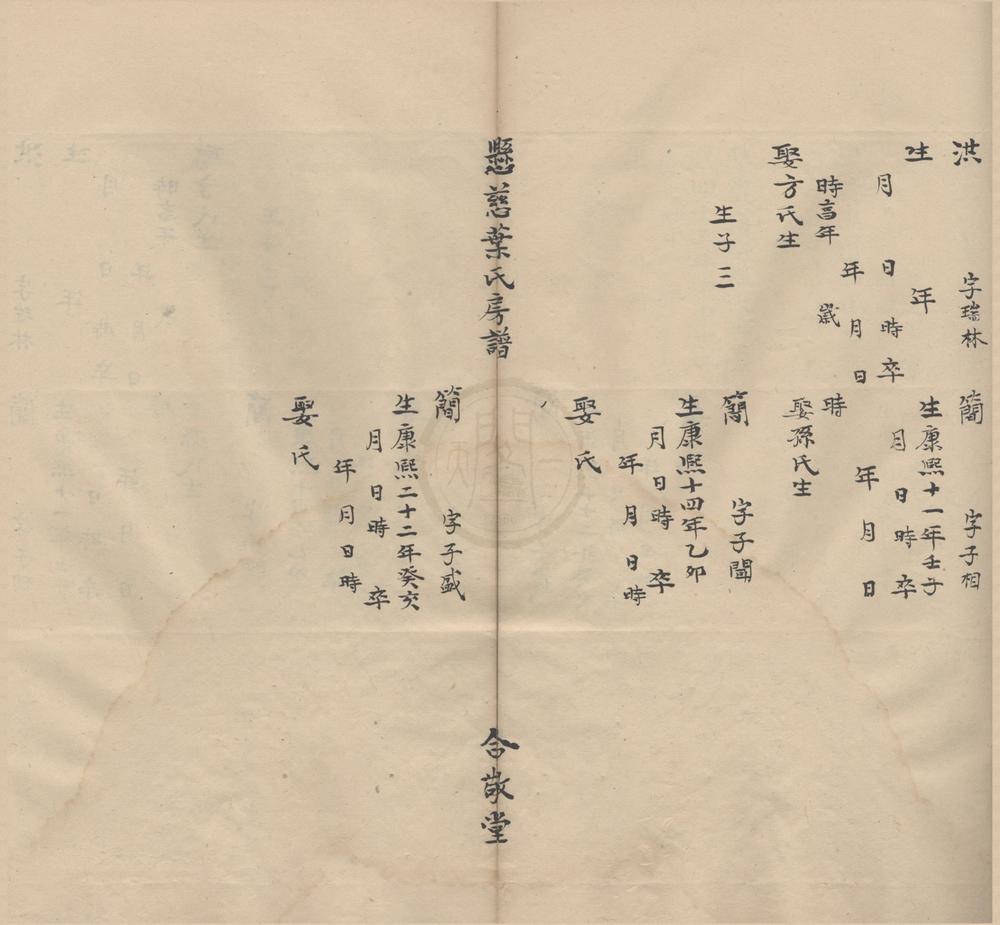 洪 字瑞林
生 年
月 日 時 卒
年 月 日
時高年 歲
娶方氏生
生子三
簡 字子相
生康熙十一年壬子
月 日 時 卒
年 月 日
時
娶孫氏生
簡 字子
生康熙十四年乙卯
月 日 時 卒
年 月 日 時
娶 氏
懸慈葉氏房譜
合敬堂
簡 字子盛
生康熙二十二年癸亥
月 日 時 卒
年 月 日 時
娶 氏